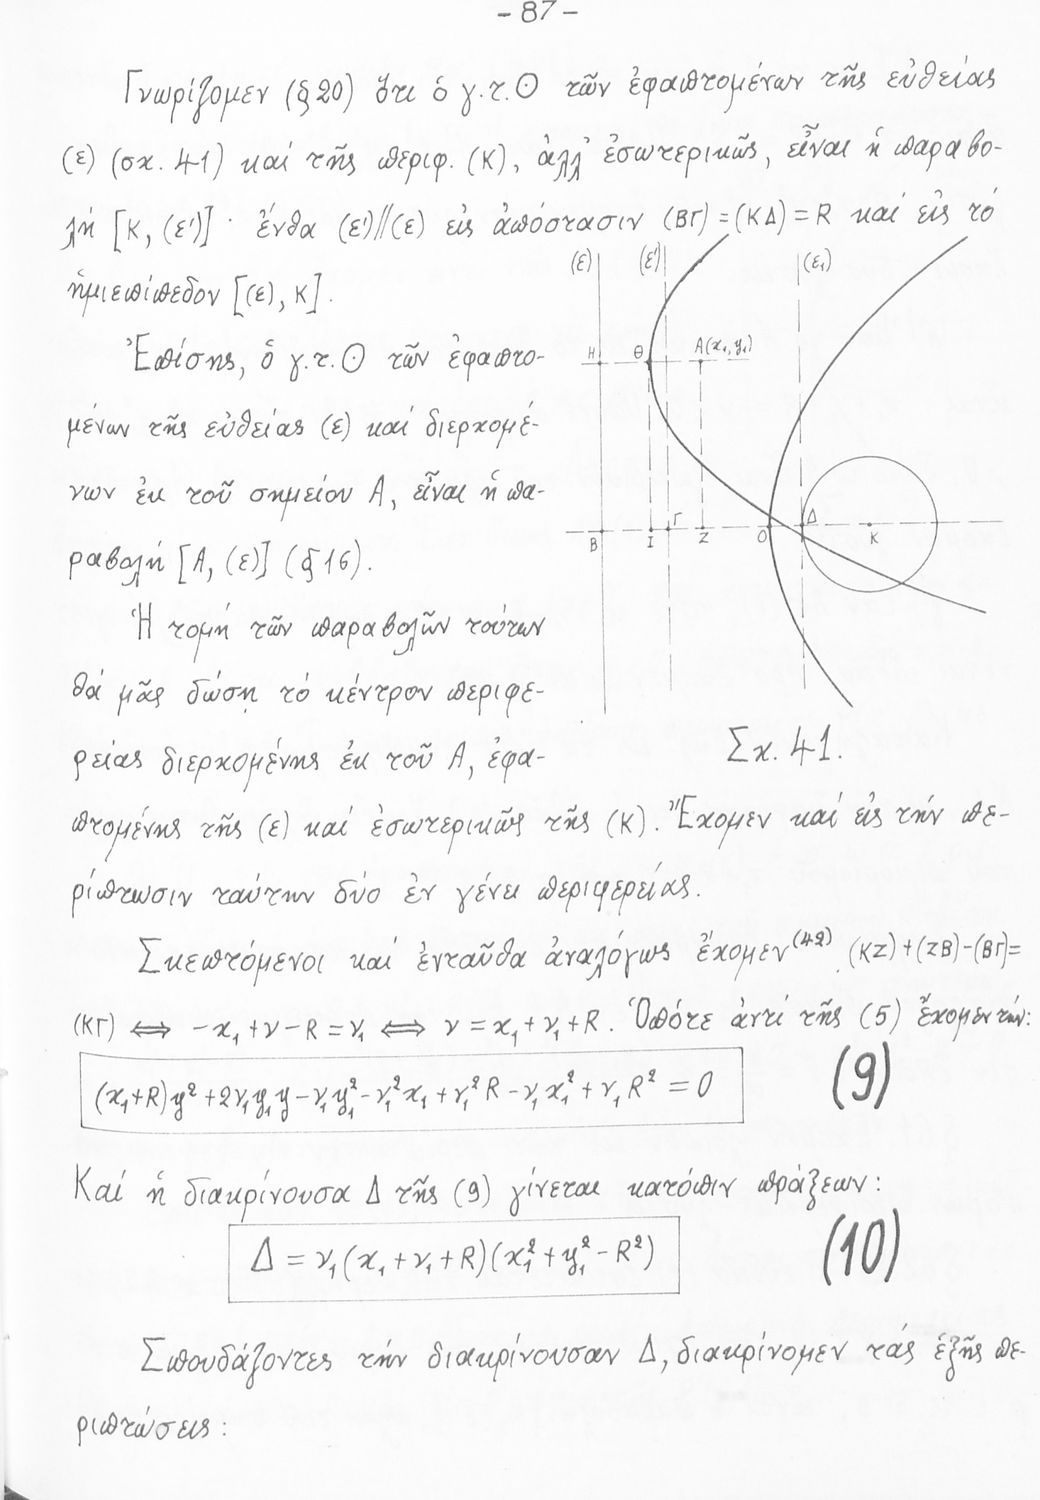 - 87 -
Γνωρίζομεν (§ 20) ὅτι ὁ γ.τ.Θ τῶν ἐφαπτομένων τῆς εὐθείας
(ε) (σχ. 41) καί τῆς περιφ. (Κ), ἀλλ' ἐσωτερικῶς, εἶναι ἡ παραβο-
λή [Κ, (ε')] · ἔνθα (ε')//(ε) εἰς ἀπόστασιν (ΒΓ) = (ΚΔ) = R καί εἰς τό
ἡμιεπίπεδον [(ε), Κ].
Ἐπίσης, ὁ γ.τ.Θ τῶν ἐφαπτο-
μένων τῆς εὐθείας (ε) καί διερχομέ-
νων ἐκ τοῦ σημείου Α, εἶναι ἡ πα-
ραβολή [Α, (ε)] (§ 16).
Ἡ τομή τῶν παραβολῶν τούτων
θά μᾶς δώσῃ τό κέντρον περιφε-
ρείας διερχομένης ἐκ τοῦ Α, ἐφα-
πτομένης τῆς (ε) καί ἐσωτερικῶς τῆς (Κ). Ἔχομεν καί εἰς τήν πε-
ρίπτωσιν ταύτην δύο ἐν γένει περιφερείας.
(ε) (ε') (ε₁)
Η Θ Α(x₁, y₁)
Β Ι Γ Ζ Ο Δ Κ
Σχ. 41.
Σκεπτόμενοι καί ἐνταῦθα ἀναλόγως ἔχομεν⁽⁴²⁾ (ΚΖ)+(ΖΒ)-(ΒΓ)=
(ΚΓ) ⟺ -x₁+ν-R=ν₁ ⟺ ν=x₁+ν₁+R. Ὁπότε ἀντί τῆς (5) ἔχομεν τήν:
(x₁+R)y²+2ν₁y₁y-ν₁y₁²-ν₁²x₁+ν₁²R-ν₁x₁²+ν₁R²=0 (9)
Καί ἡ διακρίνουσα Δ τῆς (9) γίνεται κατόπιν πράξεων:
Δ = ν₁(x₁+ν₁+R)(x₁²+y₁²-R²) (10)
Σπουδάζοντες τήν διακρίνουσαν Δ, διακρίνομεν τάς ἑξῆς πε-
ριπτώσεις: